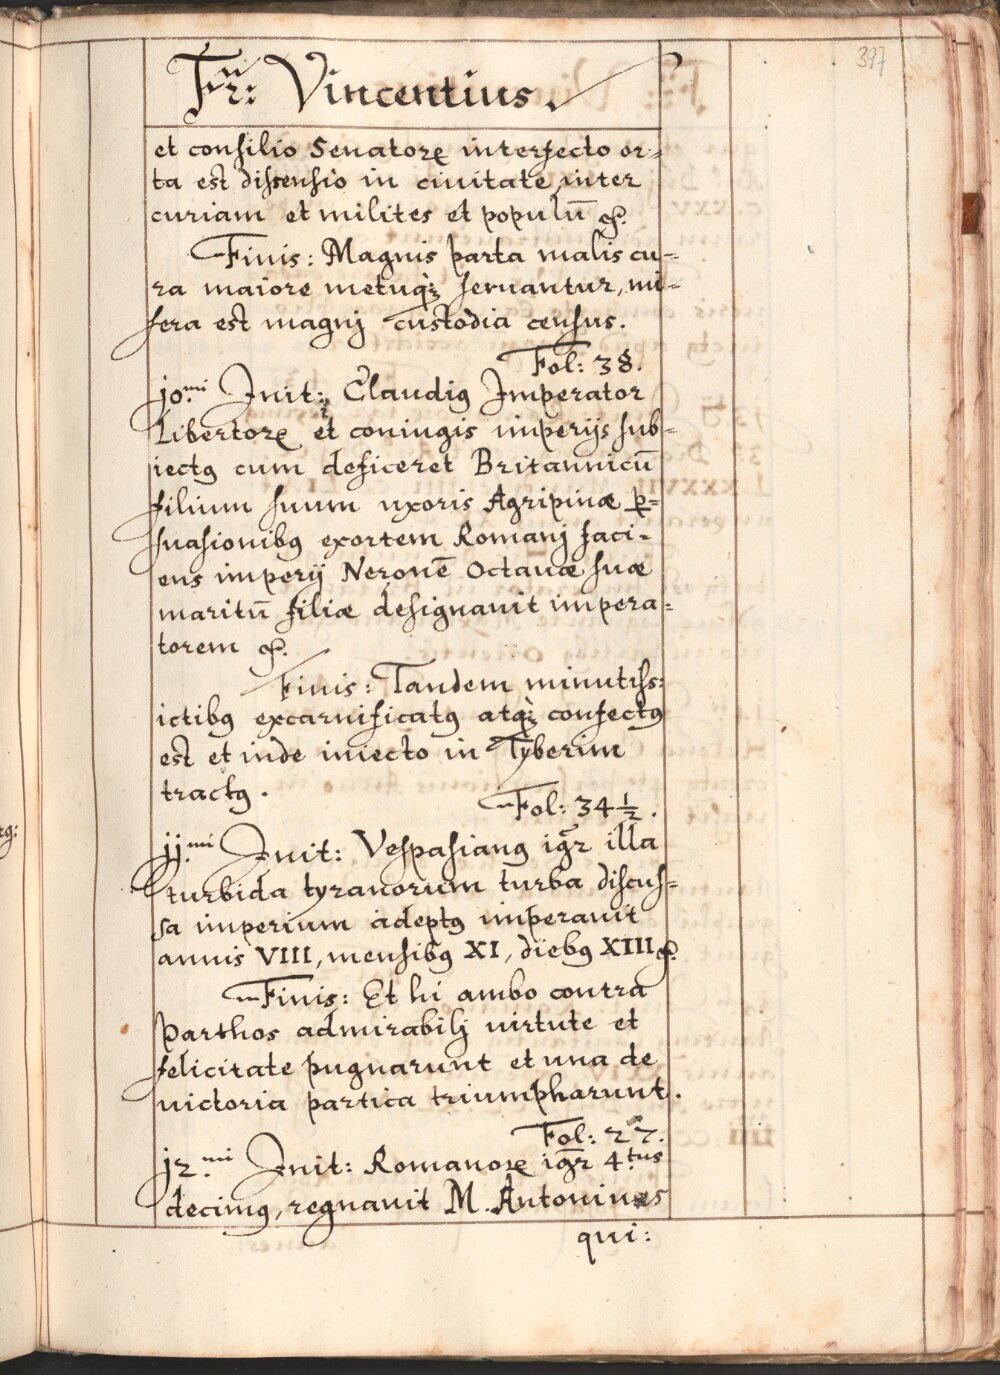 397
Fr: Vincentius.
et consilio Senatorꝝ interfecto or-
ta est dissensio in ciuitate inter
curiam et milites et populū &.
Finis: Magnis parta malis cu-
ra maiore metuqꝫ seruantur, mi-
sera est magnj custodia census.
Fol: 38.
jo.mi Init: Claudiꝰ Imperator
Libertorꝝ et coniugis imperijs sub-
iectꝰ cum deficeret Britannicū
filium suum uxoris Agripinæ ꝑ-
suasionibꝰ exortem Romanj faci-
ens imperij Neronē Octauæ suæ
maritū filiæ designauit impera-
torem &.
Finis: Tandem minutiss:
ictibꝰ excarnificatꝰ atqꝫ confectꝰ
est et inde iniecto in Tyberim
tractꝰ.
Fol: 34 ½.
jj.mi Init: Vespasianꝰ igr̄ illa
turbida tyranorum turba discus-
sa imperium adeptꝰ imperauit
annis VIII, mensibꝰ XI, diebꝰ XIII &.
Finis: Et hi ambo contra
Parthos admirabilj uirtute et
felicitate pugnarunt et una de
uictoria partica triumpharunt.
Fol: 27.
j2.mi Init: Romanorꝝ igr̄ 4.tus
decimꝰ, regnauit M. Antoninus
qui: